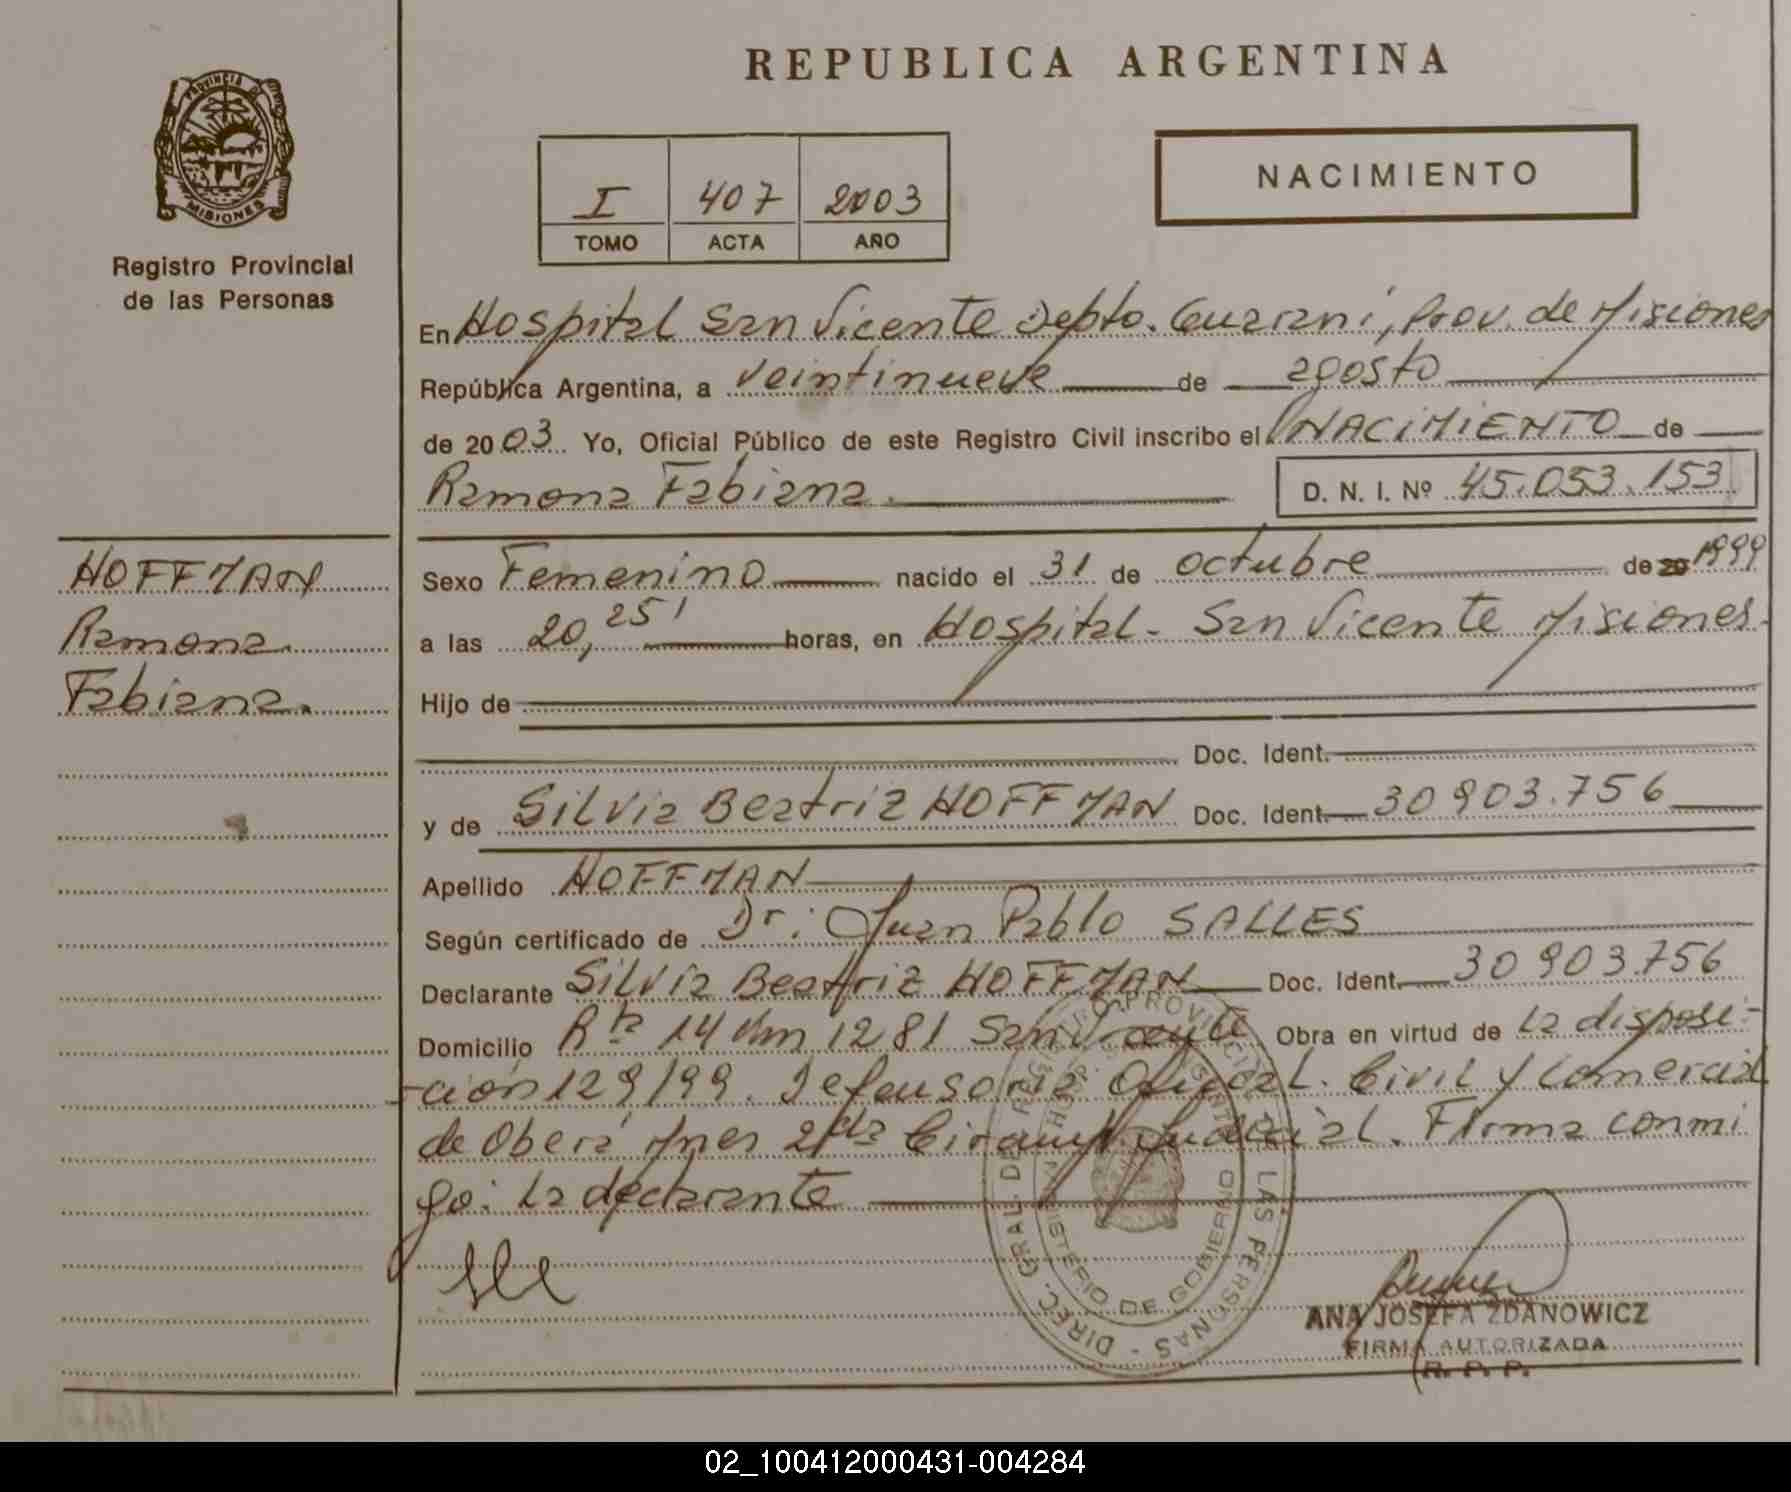 REPUBLICA ARGENTINA
PROVINCIA DE
MISIONES
Registro Provincial
de las Personas
I 407 2003
TOMO ACTA AÑO
NACIMIENTO
En Hospital San Vicente Depto. Guarani, Prov. de Misiones
República Argentina, a veintinueve de agosto
de 2003 Yo, Oficial Público de este Registro Civil inscribo el NACIMIENTO de
Ramona Fabiana. D. N. I. Nº 45.053.153
HOFFMAN
Ramona
Fabiana.
Sexo Femenino nacido el 31 de octubre de 20 1999
a las 20,25' horas, en Hospital - San Vicente Misiones.
Hijo de
Doc. Ident.
y de Silvia Beatriz HOFFMAN Doc. Ident. 30903.756
Apellido HOFFMAN
Según certificado de Dr: Juan Pablo SALLES
Declarante Silvia Beatriz HOFFMAN Doc. Ident. 30903.756
Domicilio Rta 14 Km 1281 San Vicente Obra en virtud de la disposi-
-ción 129/99. Defensoria Oficial. Civil y Comercial
de Oberá Mnes 2da Circunp. Judicial. Firma conmi
go: La declarante
DIREC. GRAL. DE REGISTRO PROVINCIAL DE LAS PERSONAS -
MINISTERIO DE GOBIERNO
ANA JOSEFA ZDANOWICZ
FIRMA AUTORIZADA
R. P. P.
02_100412000431-004284